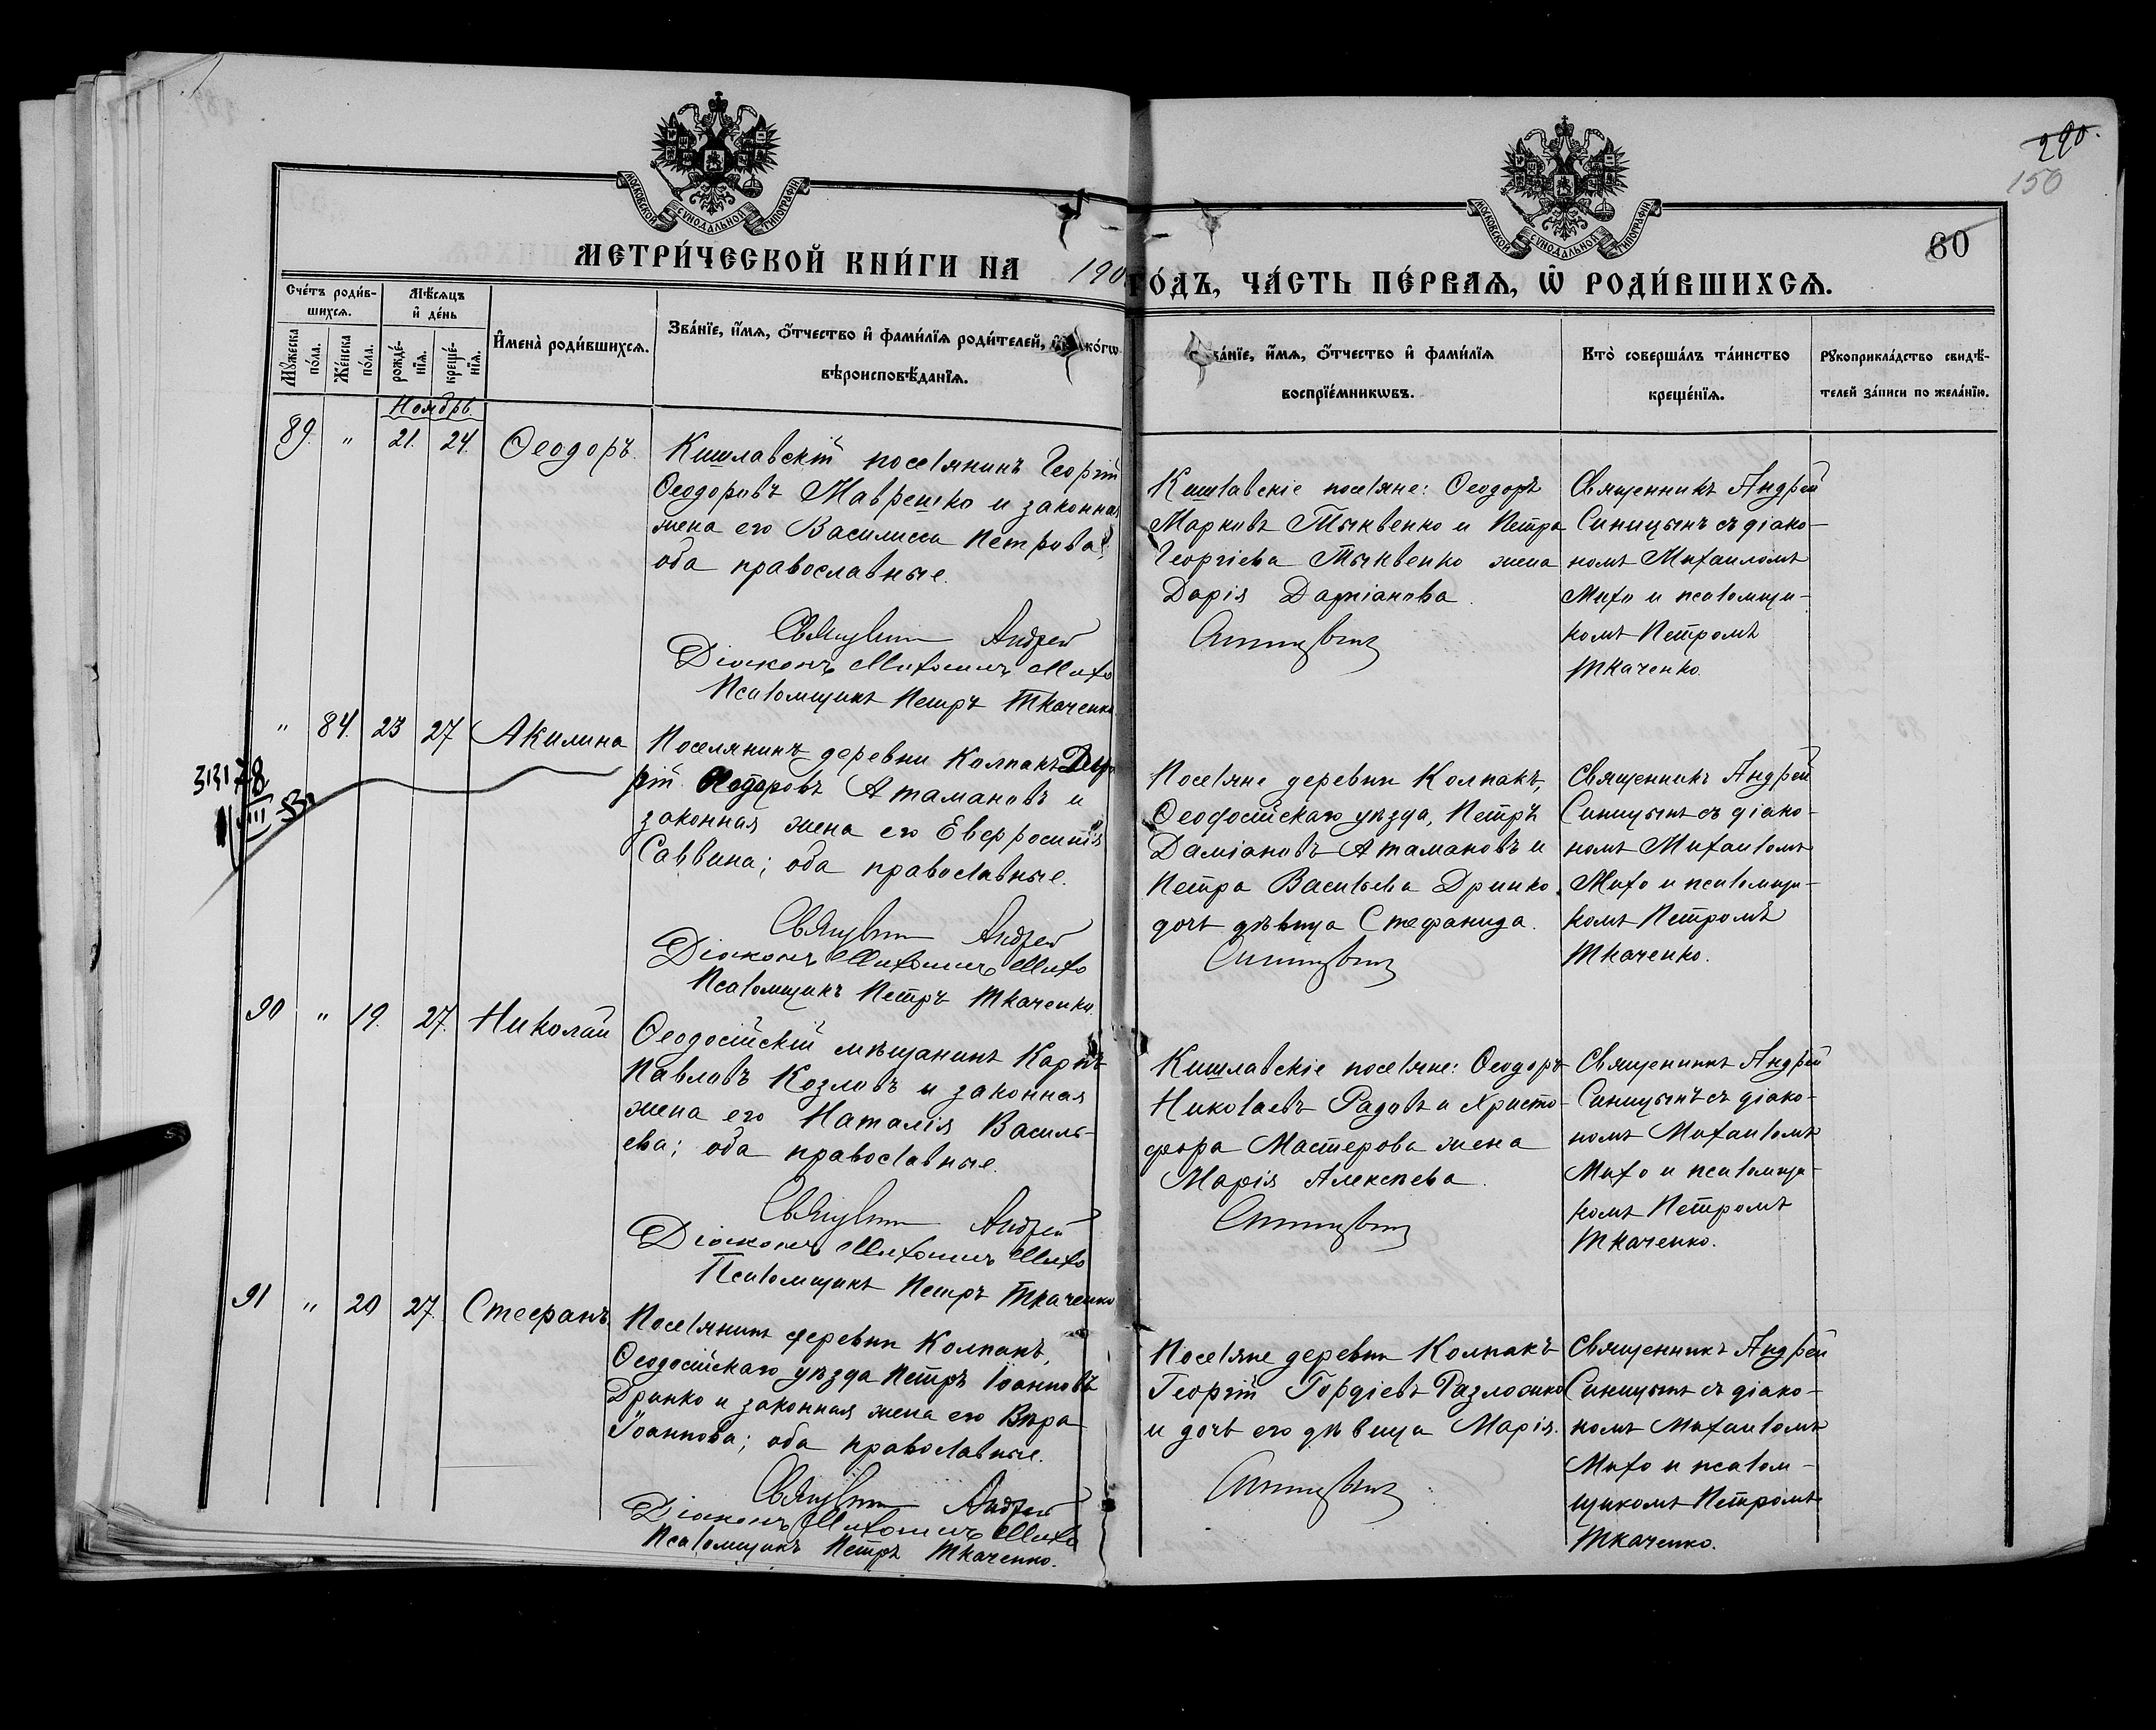 290.
150
60
МОСКОВСКОЙ СѴНОДАЛЬНОЙ ТИПОГРАФІИ
МОСКОВСКОЙ СѴНОДАЛЬНОЙ ТИПОГРАФІИ
МЕТРИ́ЧЕСКОЙ КНИ́ГИ НА 190
ГО́ДЪ, ЧА́СТЬ ПЕ́РВАѦ, Ѿ РОДИ́ВШИХСѦ.
Сче́тъ роди́в-
шихсѧ.
Мѣ́сѧцъ
и҆ де́нь
Мꙋ́жеска по́ла.
Же́нска по́ла.
рожде́-
нїѧ.
креще́-
нїѧ.
И҆мена̀ роди́вшихсѧ.
Зва́нїе, и҆́мѧ, ѻ҆́тчество и҆ фами́лїѧ роди́телей, и҆ ко́гѡ
вѣроисповѣ́данїѧ.
Зва́нїе, и҆́мѧ, ѻ҆́тчество и҆ фами́лїѧ
воспрїе́мникѡвъ.
Кто̀ соверша́лъ та́инство
креще́нїѧ.
Рꙋкоприкла́дство свидѣ́-
телей за́писи по жела́нїю.
Ноябрь.
89. " 21. 24. Ѳеодоръ.
Кишлавскій поселянинъ Георгій
Ѳеодоровъ Маврешко и законная
жена его Василисса Петрова;
оба православные.
Священникъ Андрей
Діаконъ Михаилъ Михо
Псаломщикъ Петръ Ткаченко
Кишлавскіе поселяне: Ѳеодоръ
Марковъ Тыквенко и Петра
Георгіева Тыквенко жена
Дарія Даміанова.
Синицынъ
Священникъ Андрей
Синицынъ съ діако-
номъ Михаиломъ
Михо и псаломщи-
комъ Петромъ
Ткаченко.
" 84. 23 27 Акилина
Поселянинъ деревни Колпакъ
Ѳеодоровъ Атамановъ и
законная жена его Евфросинія
Саввина; оба православные.
Священникъ Андрей
Діаконъ Михаилъ Михо
Псаломщикъ Петръ Ткаченко
Поселяне деревни Колпакъ,
Ѳеодосійскаго уѣзда, Петръ
Даміановъ Атамановъ и
Петра Васильева Дринко
дочь дѣвица Стефанида.
Синицынъ
Священникъ Андрей
Синицынъ съ діако-
номъ Михаиломъ
Михо и псаломщи-
комъ Петромъ
Ткаченко.
90 " 19. 27. Николай
Ѳеодосійскій мѣщанинъ Карпъ
Павловъ Козловъ и законная
жена его Наталія Василь-
ева; оба православные.
Священникъ Андрей
Діаконъ Михаилъ Михо
Псаломщикъ Петръ Ткаченко
Кишлавскіе поселяне: Ѳеодоръ
Николаевъ Радовъ и Христо-
фора Мастерова жена
Марія Алексѣева.
Синицынъ
Священникъ Андрей
Синицынъ съ діако-
номъ Михаиломъ
Михо и псаломщи-
комъ Петромъ
Ткаченко.
91 " 20 27. Стефанъ
Поселянинъ деревни Колпакъ,
Ѳеодосійскаго уѣзда Петръ Іоанновъ
Дринко и законная жена его Вѣра
Іоаннова; оба православные.
Священникъ Андрей
Діаконъ Михаилъ Михо
Псаломщикъ Петръ Ткаченко.
Поселяне деревни Колпакъ
Георгій Гордіевъ
и дочь его дѣвица Марія.
Синицынъ
Священникъ Андрей
Синицынъ съ діако-
номъ Михаиломъ
Михо и псалом-
щикомъ Петромъ
Ткаченко.